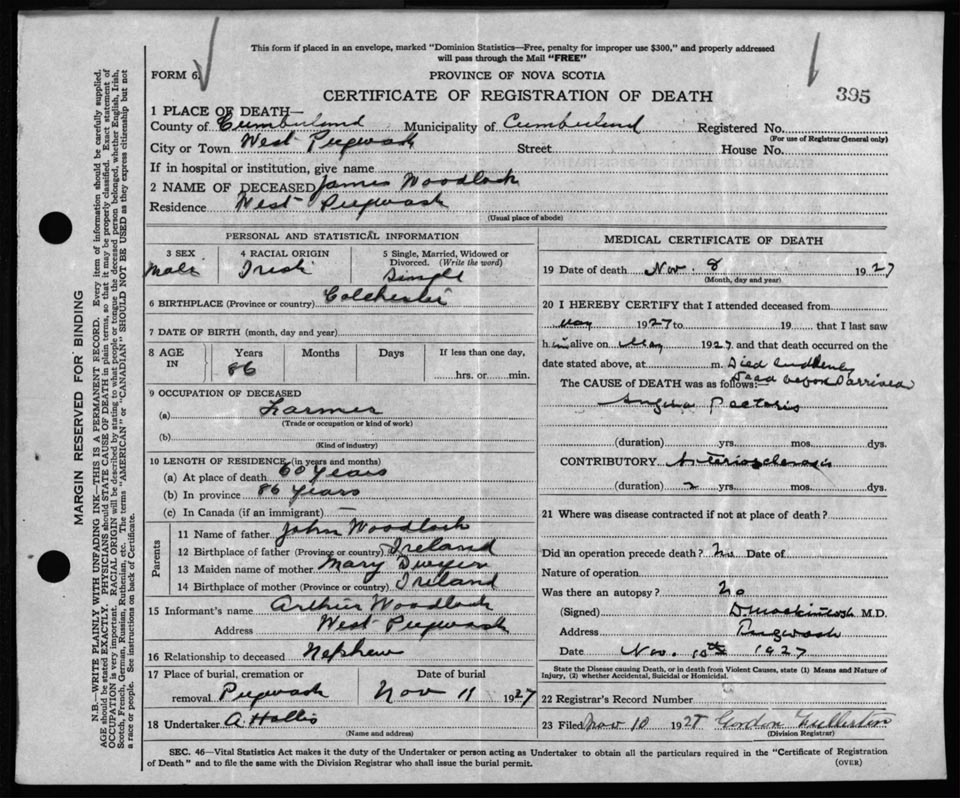 This form if placed in an envelope, marked "Dominion Statistics—Free, penalty for improper use $300," and properly addressed
will pass through the Mail "FREE"
FORM 6.
PROVINCE OF NOVA SCOTIA
CERTIFICATE OF REGISTRATION OF DEATH
395
1 PLACE OF DEATH—
County of Cumberland Municipality of Cumberland Registered No.
(For use of Registrar General only)
City or Town West Pugwash Street House No.
If in hospital or institution, give name
2 NAME OF DECEASED James Woodlock
Residence West Pugwash
(Usual place of abode)
PERSONAL AND STATISTICAL INFORMATION
3 SEX 4 RACIAL ORIGIN 5 Single, Married, Widowed or
Divorced. (Write the word)
Male Irish Single
6 BIRTHPLACE (Province or country) Colchester
7 DATE OF BIRTH (month, day and year)
8 AGE IN Years Months Days If less than one day,
86 hrs. or min.
9 OCCUPATION OF DECEASED
(a) Farmer
(Trade or occupation or kind of work)
(b)
(Kind of industry)
10 LENGTH OF RESIDENCE (in years and months)
(a) At place of death 60 years
(b) In province 86 years
(c) In Canada (if an immigrant) —
Parents
11 Name of father John Woodlock
12 Birthplace of father (Province or country) Ireland
13 Maiden name of mother Mary Dwyer
14 Birthplace of mother (Province or country) Ireland
15 Informant's name Arthur Woodlock
Address West Pugwash
16 Relationship to deceased Nephew
17 Place of burial, cremation or Date of burial
removal Pugwash Nov 11 1927
18 Undertaker A. Hollis
(Name and address)
MEDICAL CERTIFICATE OF DEATH
19 Date of death Nov. 8 1927
(Month, day and year)
20 I HEREBY CERTIFY that I attended deceased from
May 1927 to 19 that I last saw
him alive on May 1927, and that death occurred on the
date stated above, at m. Died suddenly
The CAUSE OF DEATH was as follows:— Dead before I arrived
Angina Pectoris
(duration) yrs. mos. dys.
CONTRIBUTORY Arteriosclerosis
(duration) 2 yrs. mos. dys.
21 Where was disease contracted if not at place of death?
Did an operation precede death? No Date of
Nature of operation
Was there an autopsy? No
(Signed) D. Mackintosh M.D.
Address Pugwash
Date Nov. 10th 1927
State the Disease causing Death, or in death from Violent Causes, state (1) Means and Nature of
Injury, (2) whether Accidental, Suicidal or Homicidal.
22 Registrar's Record Number
23 Filed Nov 10 1927 Gordon Fullerton
(Division Registrar)
SEC. 46—Vital Statistics Act makes it the duty of the Undertaker or person acting as Undertaker to obtain all the particulars required in the "Certificate of Registration
of Death" and to file the same with the Division Registrar who shall issue the burial permit.
(OVER)
MARGIN RESERVED FOR BINDING
N.B.—WRITE PLAINLY WITH UNFADING INK—THIS IS A PERMANENT RECORD. Every item of information should be carefully supplied.
AGE should be stated EXACTLY. PHYSICIANS should STATE CAUSE OF DEATH in plain terms, so that it may be properly classified. Exact statement of
OCCUPATION is very important. RACIAL ORIGIN will be described by stating to what people or tongue the deceased person belonged, whether English, Irish,
Scotch, French, German, Russian, Ruthenian, etc. The terms "AMERICAN" or "CANADIAN" SHOULD NOT BE USED as they express citizenship but not
a race or people. See instructions on back of Certificate.